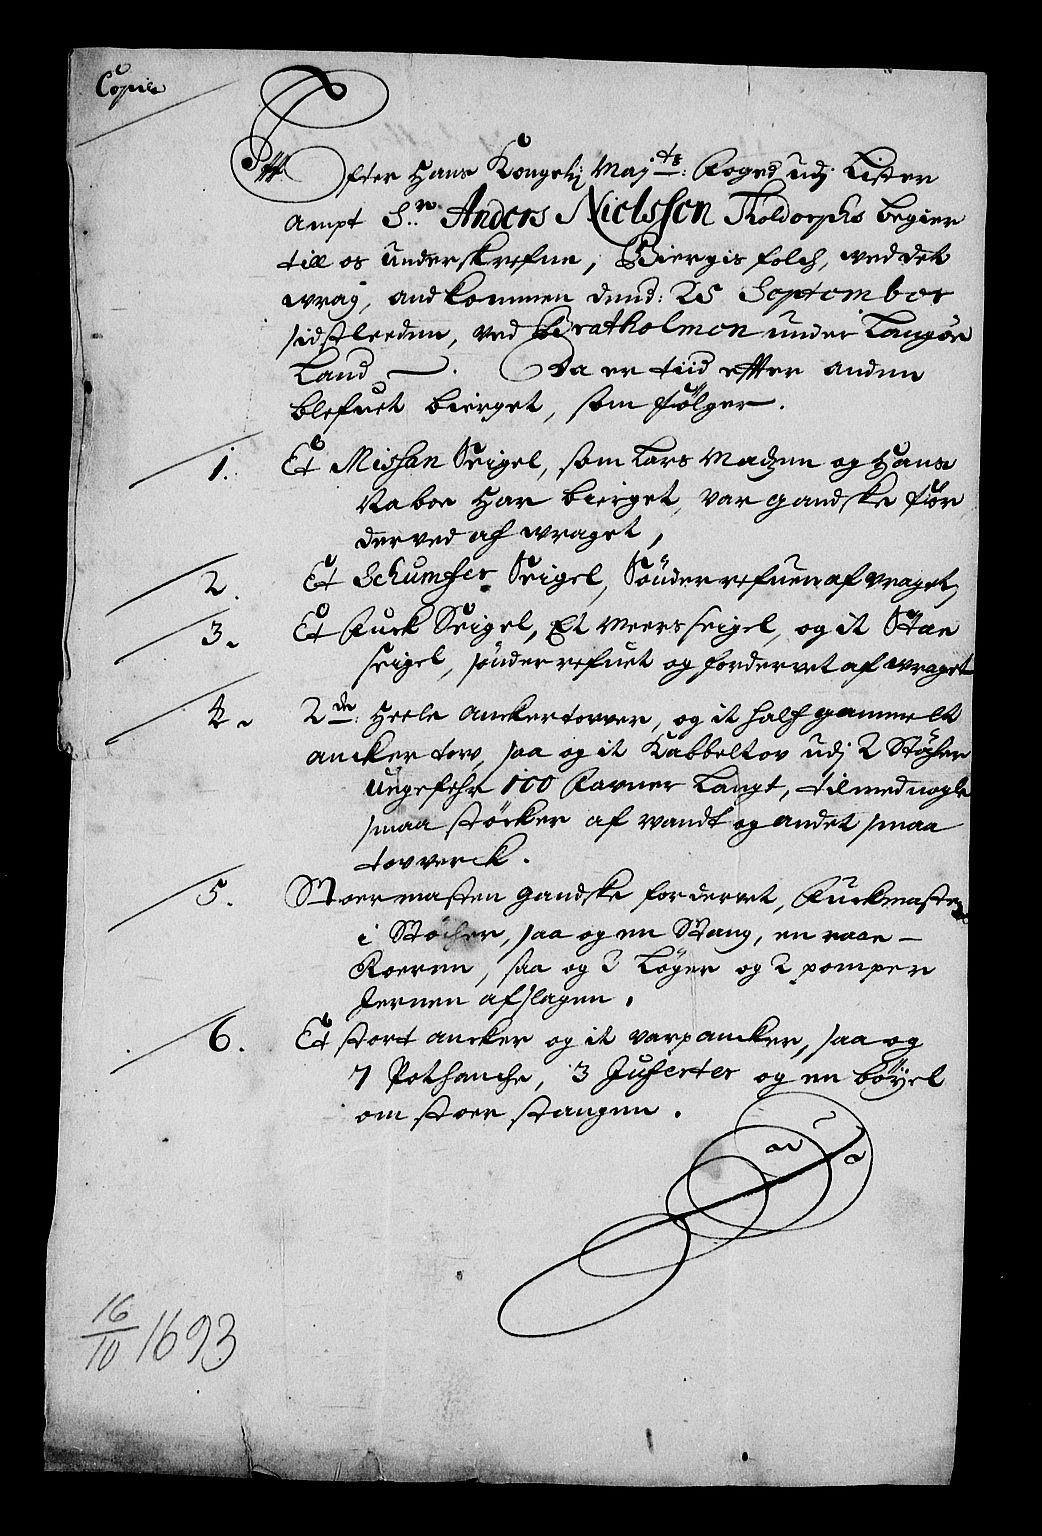 Copie
Efter Hans Kongel: Maj.ts: Foged udj Lister
Ampt S.r Anders Nielssen Tholdorphs begier
till os underskrefne, Biergis folch, ved det
wrag, andkommen dend: 25 September
sidstleeden, ved Bratholmen under Langöe
Land. Da er tiid effter anden
blefuet bierget, som fölger.
1. Et Missan Seigel, som Lars Madzen og Hans
Naboe Har bierget, var gandske for
derved af wraget,
2. Et Schumfer Seigel, Sönderrefuen af vraget,
3. Et Fuck Seigel, Et Meers seigel, og it Stae
seigel, sönderrefuet og fordervet af wraget
4. 2de: Heele Anckertover, og it half gammelt
ancker tow, saa og it Kabbeltov udj 2 Stöcher
ungefehr 100 Favner Langt, tilmed nogle
smaa stöcker af vandt og andet smaa
tovverck.
5. Stoermasten gandske fordervet, Fuckmasten
i Stöcher, saa og en Stang, en raae
Roeren, saa og 3 Löyer og 2 pomper
Jernen afslagen.
6. Et stort ancker og it varpancker, saa og
7 Pothanche, 3 Juferter og en böyel
om stoer stangen.
16/10 1693